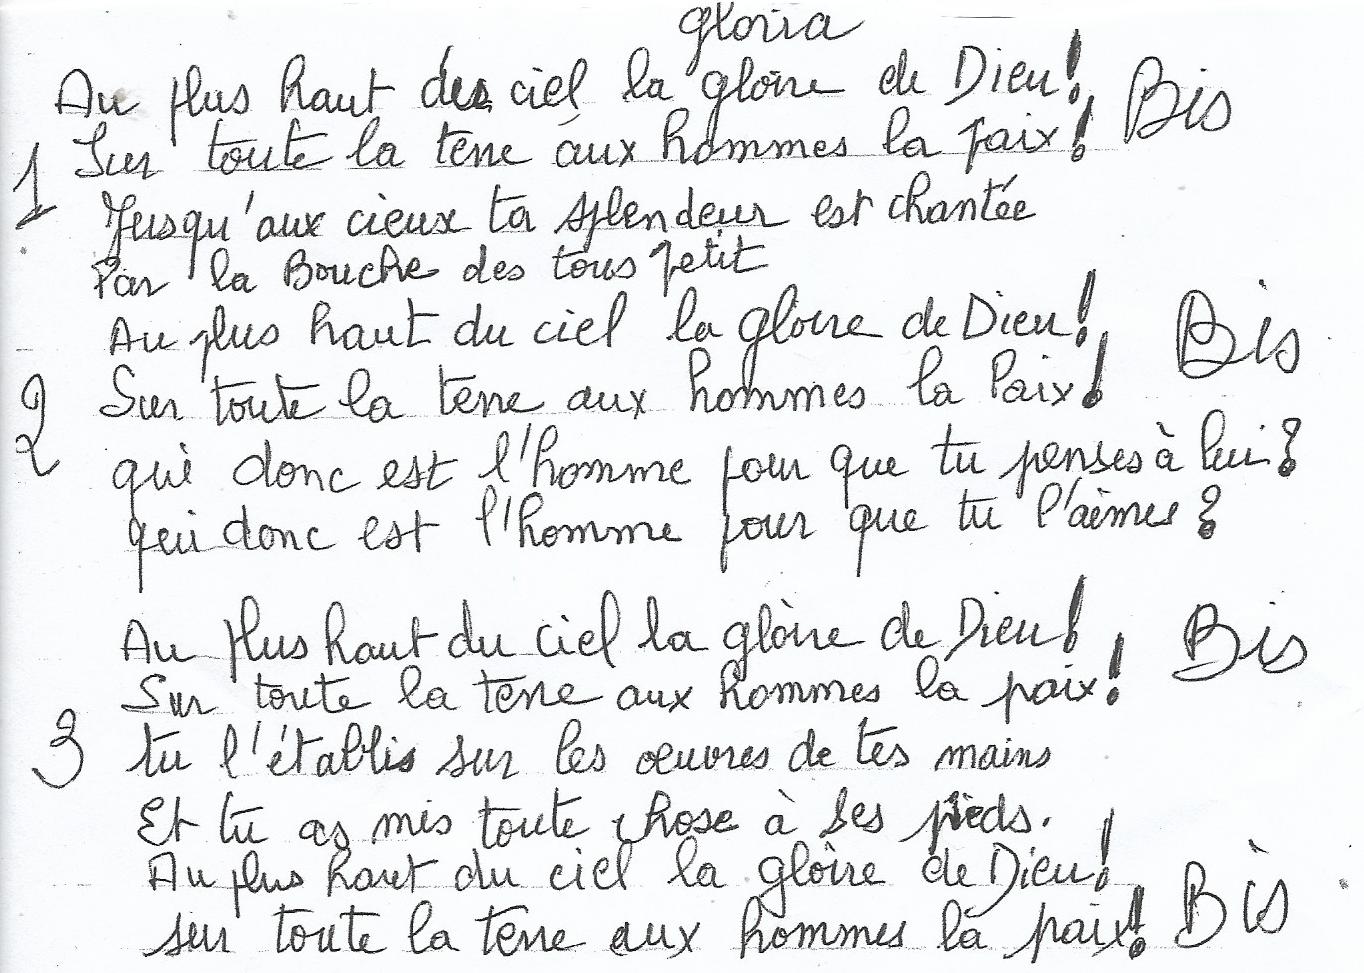 gloria
Au plus haut des ciel la gloire de Dieu! Bis
1 Sur toute la terre aux hommes la paix!
Jusqu'aux cieux ta splendeur est chantée
Par la Bouche des tous petit
Au plus haut du ciel la gloire de Dieu! Bis
2 Sur toute la terre aux hommes la Paix!
qui donc est l'homme pour que tu penses à lui?
qui donc est l'homme pour que tu l'aimes?
Au plus haut du ciel la gloire de Dieu! Bis
Sur toute la terre aux hommes la paix!
3 tu l'établis sur les œuvres de tes mains
Et tu as mis toute chose à ses pieds.
Au plus haut du ciel la gloire de Dieu!
sur toute la terre aux hommes la paix! Bis